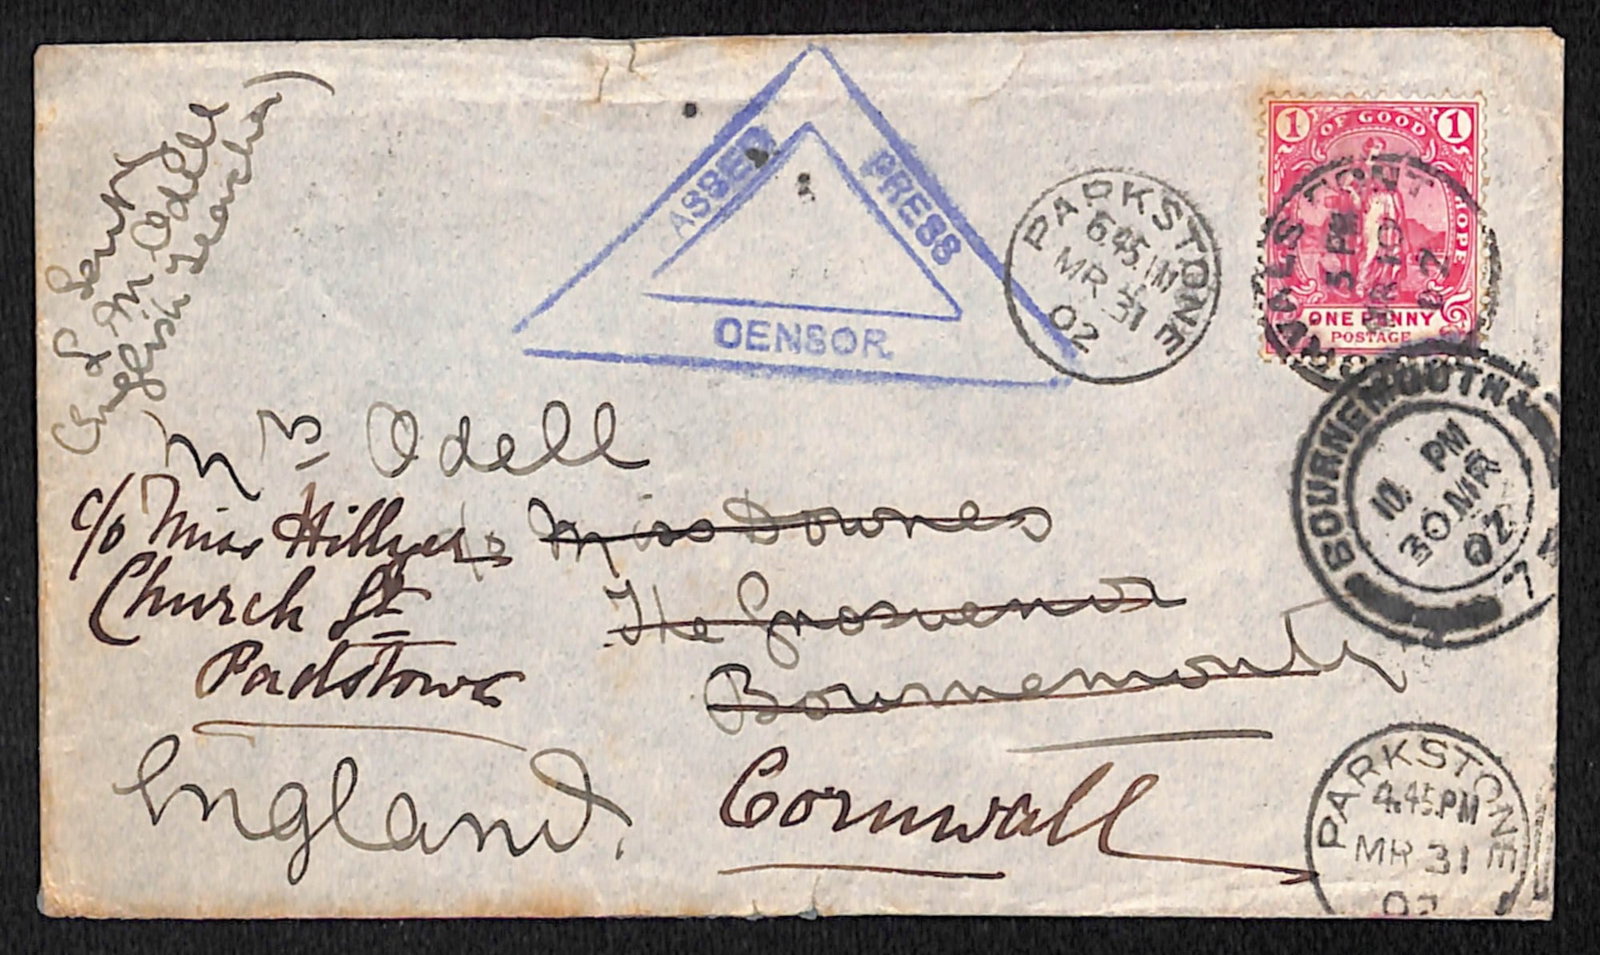 L Lenty
M Odell
English Teacher)
ASSED
PRESS
CENSOR
PARKSTONE
6.45 AM
MR 31
02
1 OF GOOD 1
HOPE
ONE PENNY
POSTAGE
NORVALS PONT
5 PM
MR 10
02
BOURNEMOUTH
10. PM
30 MR
02
7
Mrs Odell
c/o Miss Hillyer
Miss Downes
Church St
The Grosvenor
Padstow
Bournemouth
England.
Cornwall
PARKSTONE
4.45.PM
MR 31
02